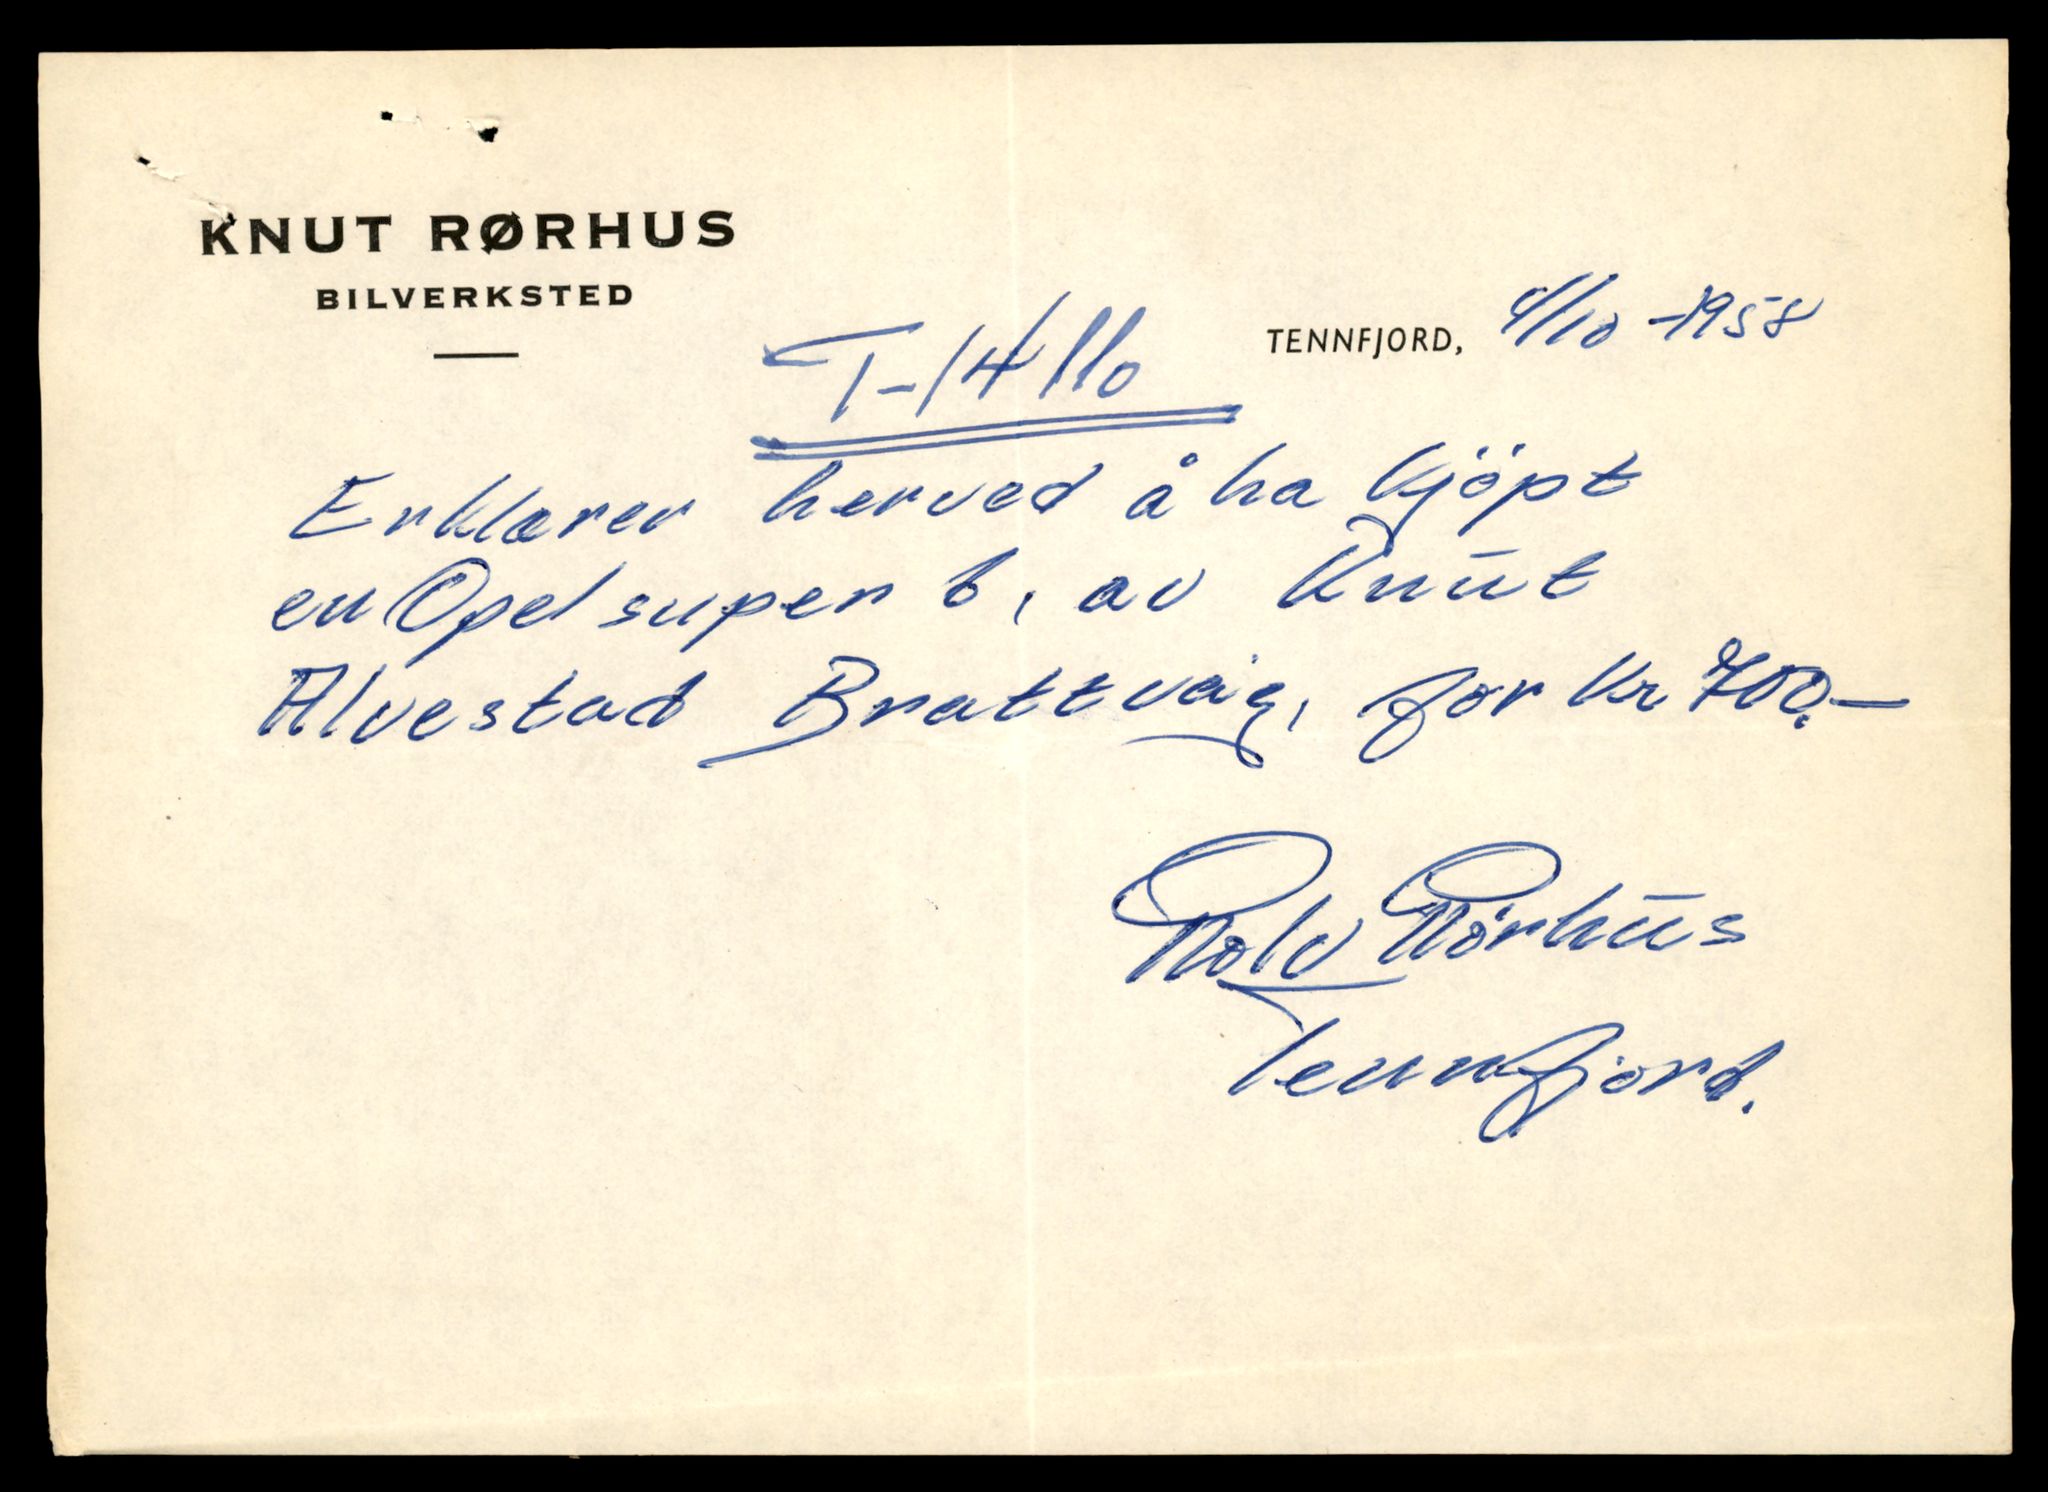 KNUT RØRHUS
BILVERKSTED
TENNFJORD, 4/10-1958
T-14110
Erklærer herved å ha kjöpt
en Opel super 6, av Knut
Alvestad Brattvåg, for kr 700,-
Rolv Rörhus
Tennfjord.